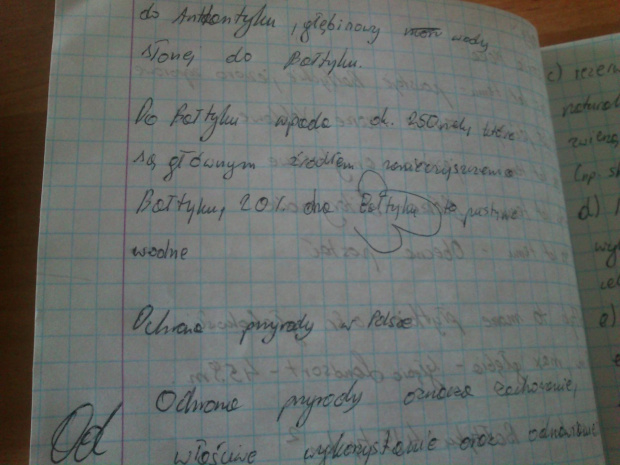 do Antlantyku, głębinowy wody
słonej do Bałtyku.
Do Bałtyku wpada ok. 250 rzek, które
są głównym źródłem zanieczyszczenia
Bałtyku, 20% dna Bałtyku to pustynie
wodne
Ochrona przyrody w Polsce
Ochrona przyrody oznacza zachowanie,
właściwe wykorzystanie oraz odnawianie
Od
c) rezerw
natural
d)
e)